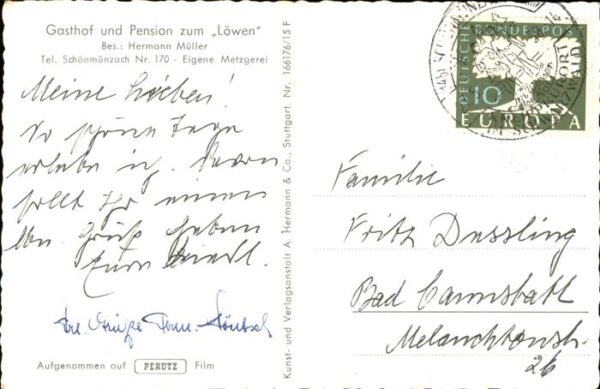 Gasthof und Pension zum „Löwen"
Bes.: Hermann Müller
Tel. Schönmünzach Nr. 170 - Eigene Metzgerei
Meine Lieben!
So schöne Tage
erlebe ich. Davon
sollt Ihr einen
lb. Gruß haben
Eure
Aufgenommen auf PERUTZ Film
Kunst- und Verlagsanstalt A. Hermann & Co., Stuttgart. Nr. 166176/15 F
DEUTSCHE BUNDESPOST
10
EUROPA
Familie
Fritz Dessling
Bad Cannstatt
Melanchtonstr.
26